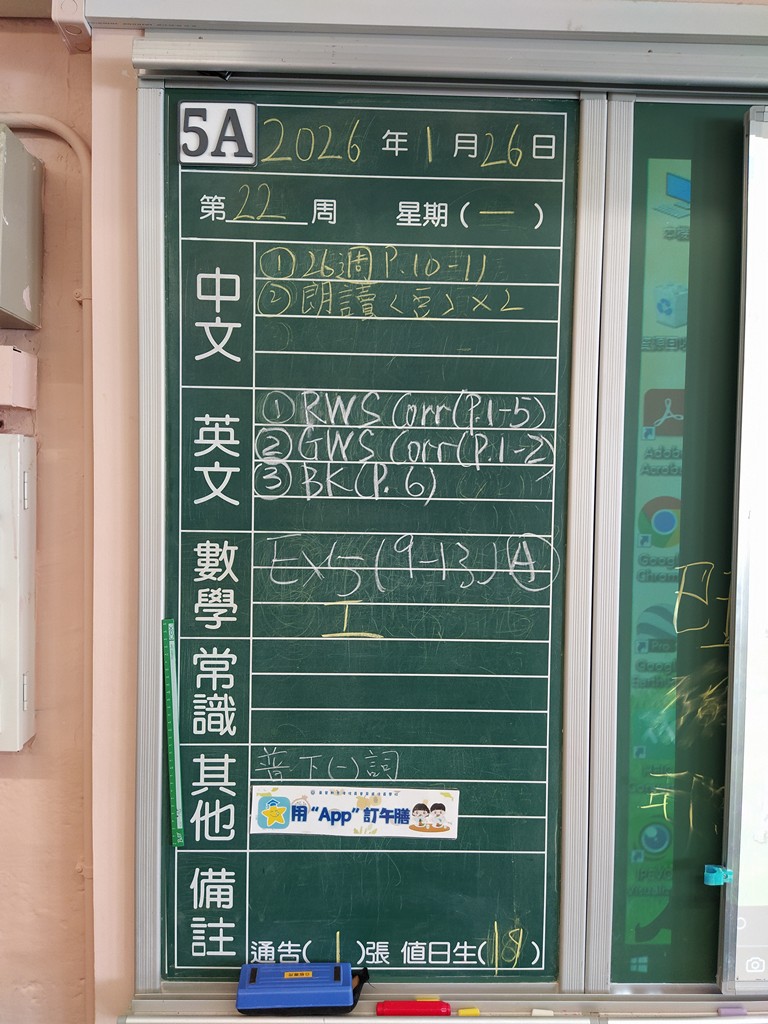 5A 2026年1月26日
第22周 星期(一)
中文
① 26週 P.10-11
② 朗讀〈〉×2
英文
① RWS Corr(P.1-5)
② GWS Corr(P.1-2)
③ BK(P.6)
數學
Ex5(9-13) A
工
常識
其他
普下(一)詞
用“App”訂午膳
備註
通告(1)張 值日生(18)
Adobe
Acrobat
Google
Chrome
Google